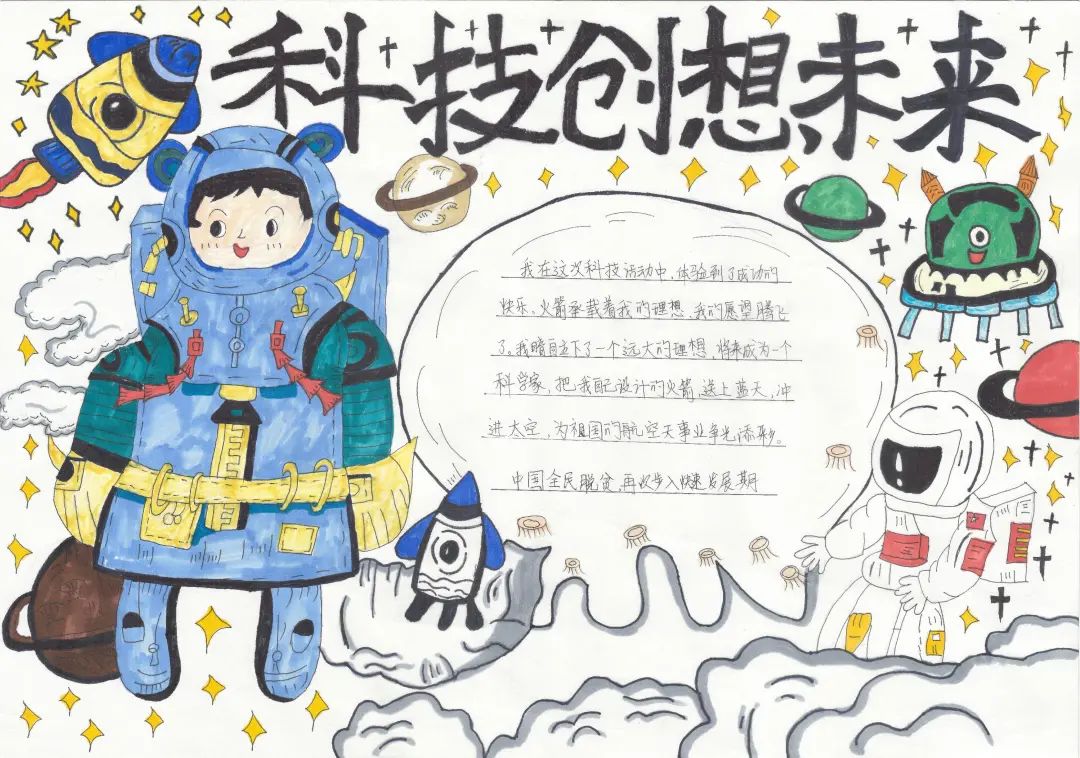 科技创想未来
我在这次科技活动中,体验到了成功的
快乐。火箭承载着我的理想,我的愿望腾飞
了。我暗自立下了一个远大的理想,将来成为一个
科学家,把我自己设计的火箭送上蓝天,冲
进太空,为祖国的航空天事业争光添彩。
中国全民脱贫,再次步入快速发展期